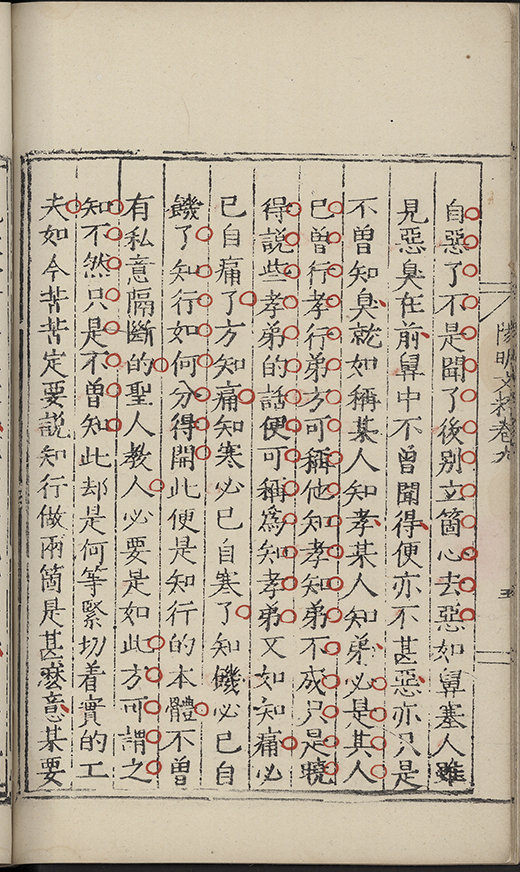 陽明文粹卷九
五
自惡了不是聞了後別立箇心去惡如鼻塞人雖
見惡臭在前鼻中不曾聞得便亦不甚惡亦只是
不曾知臭就如稱某人知孝某人知弟必是其人
已曾行孝行弟方可稱他知孝知弟不成只是曉
得說些孝弟的話便可稱為知孝弟又如知痛必
已自痛了方知痛知寒必已自寒了知饑必已自
饑了知行如何分得開此便是知行的本體不曾
有私意隔斷的聖人教人必要是如此方可謂之
知不然只是不曾知此却是何等緊切着實的工
夫如今苦苦定要說知行做兩箇是甚麽意某要